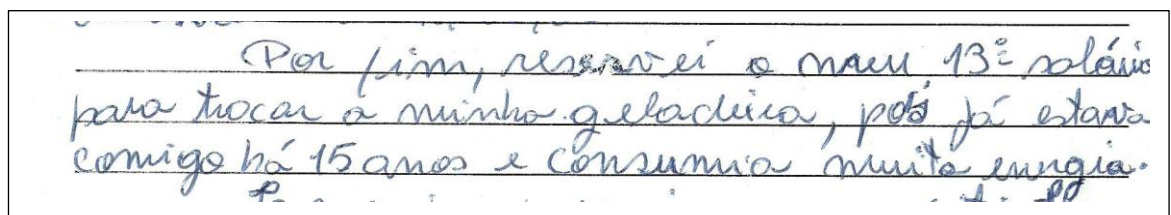 Por fim, reservei o meu 13º salário
para trocar a minha geladeira, pois já estava
comigo há 15 anos e consumia muita energia.